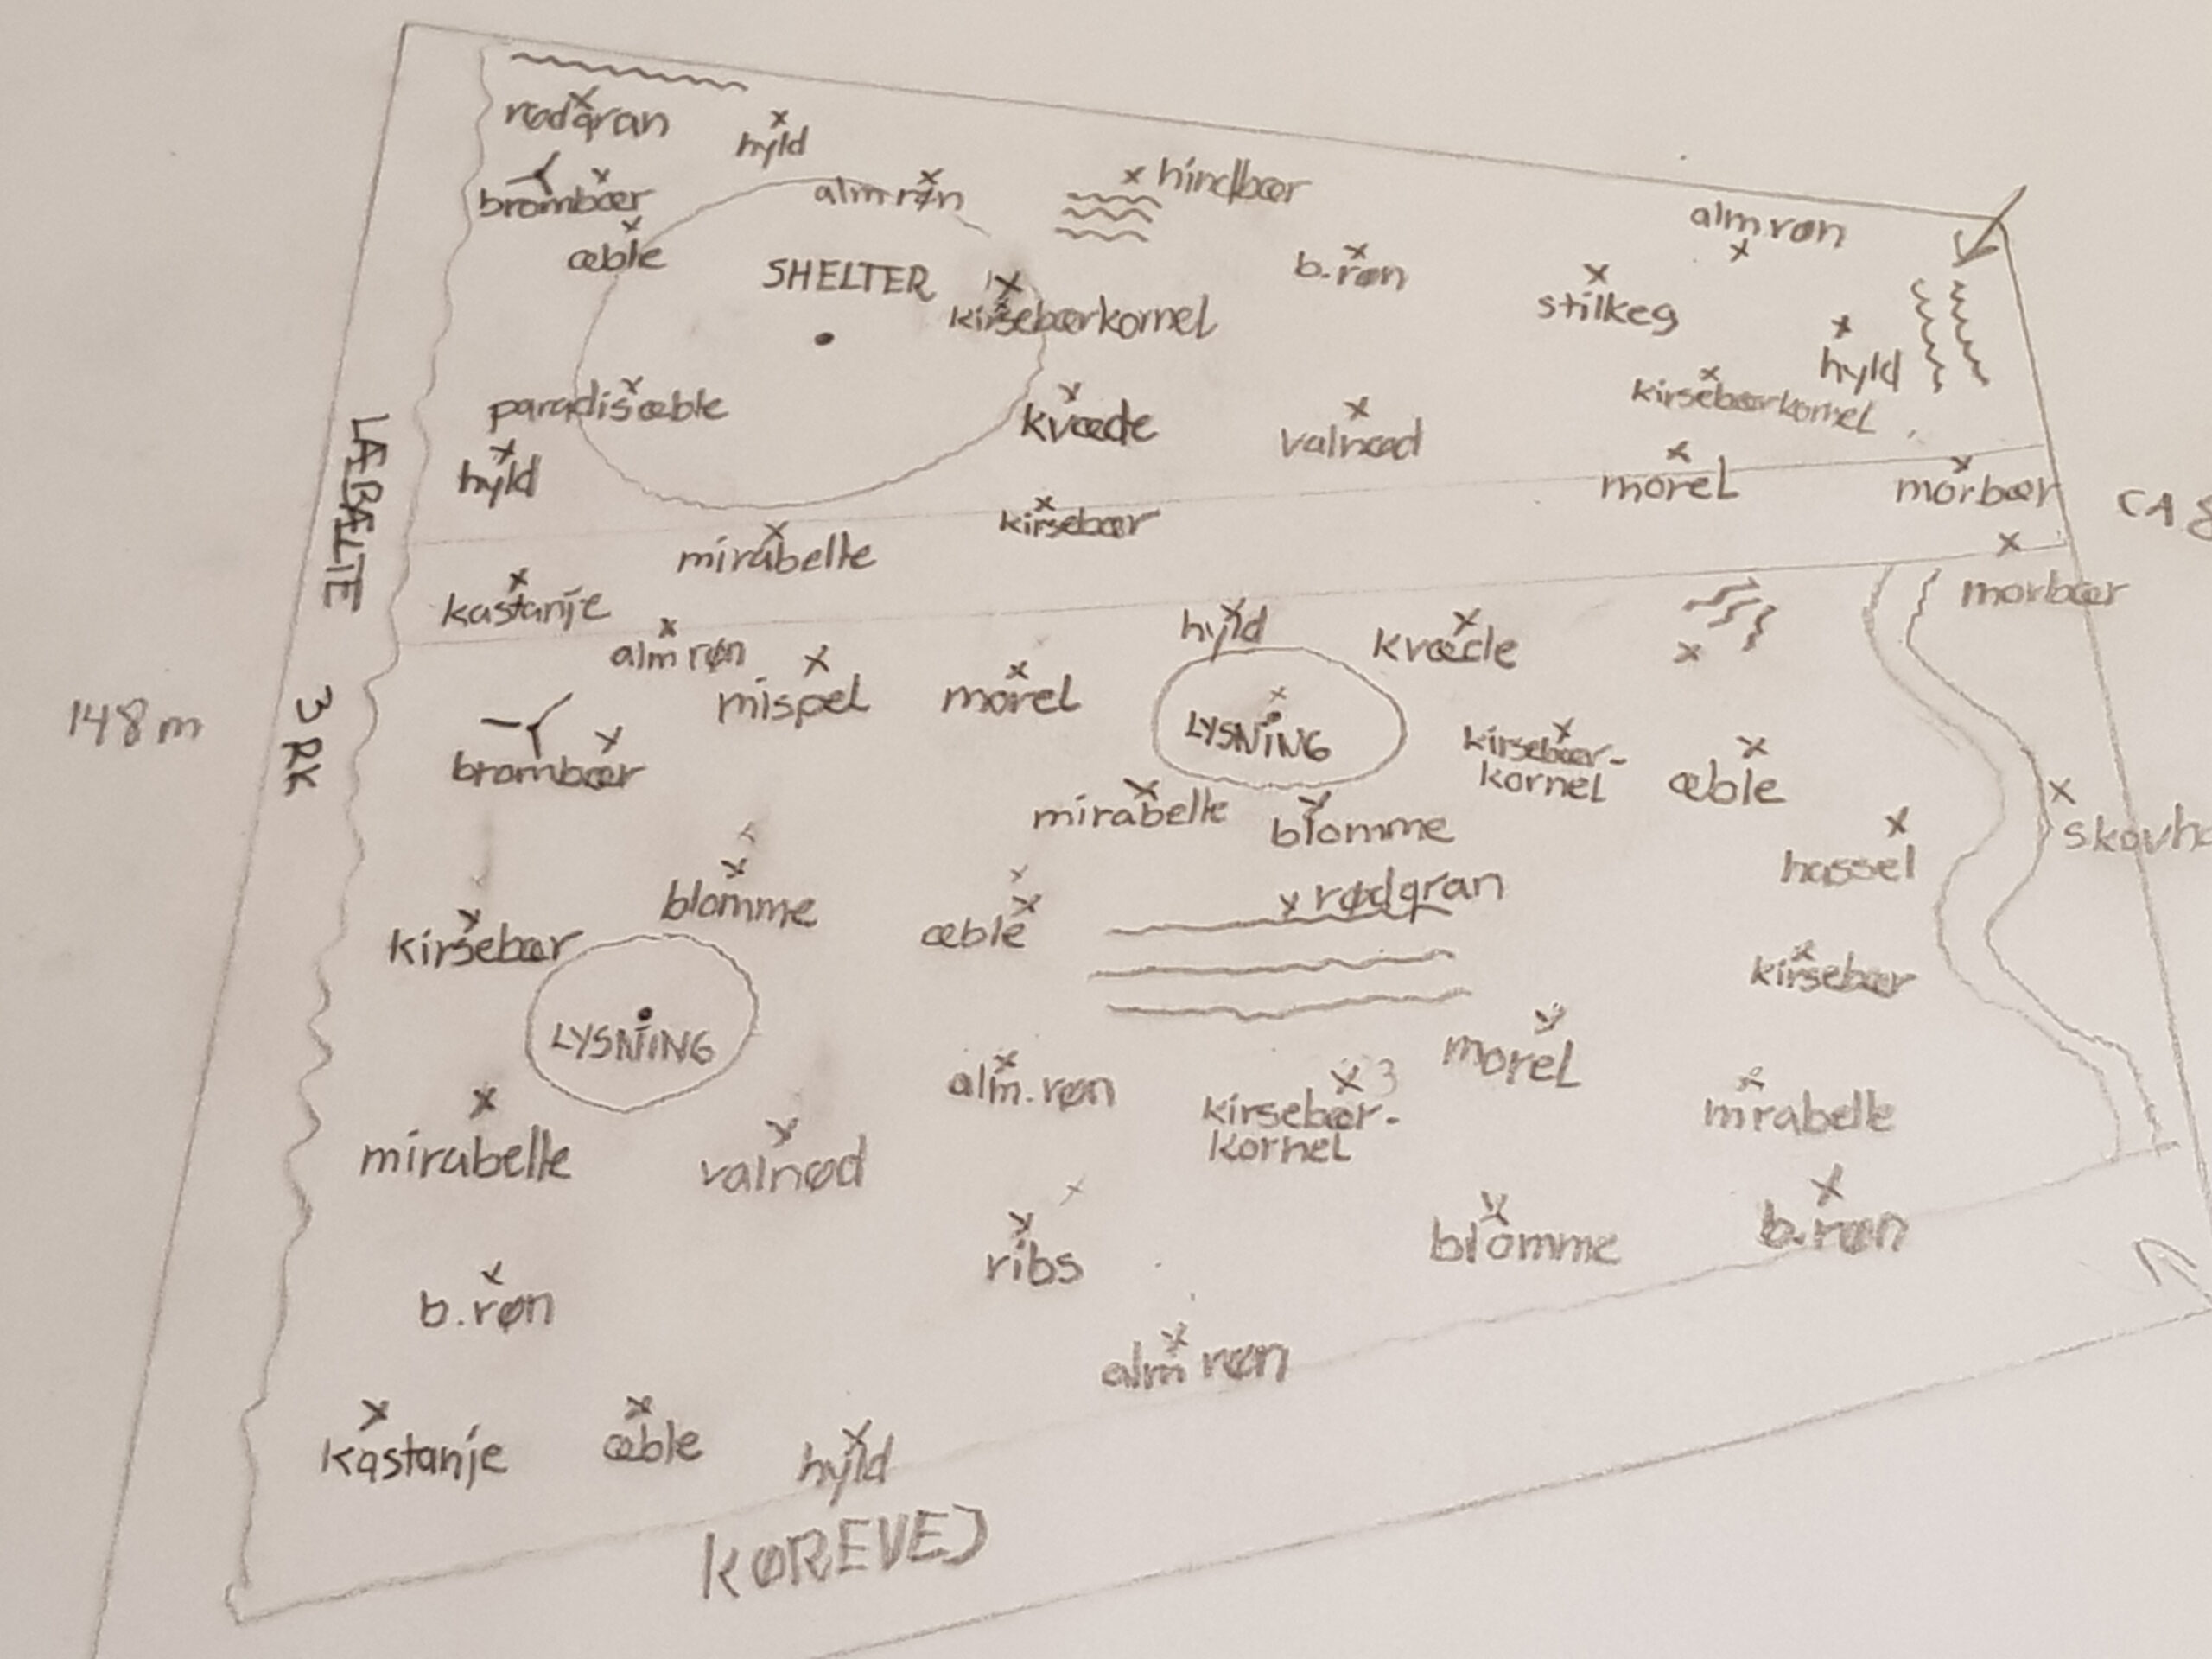 rødgran
hyld
brombær
alm røn
hindbær
æble
SHELTER
kirsebærkornel
b.røn
alm røn
stilkeg
hyld
paradisæble
kvæde
valnød
kirsebærkornel
hyld
morel
morbær
LÆBÆLTE
3 RK
kirsebær
mirabelle
CA
kastanje
morbær
alm røn
mispel
morel
hyld
kvæde
148 m
LYSNING
brombær
kirsebær-
kornel
æble
mirabelle
blomme
hassel
blomme
æble
rødgran
kirsebær
kirsebær
LYSNING
morel
alm. røn
3
kirsebær-
kornel
mirabelle
mirabelle
valnød
ribs
blomme
b.røn
b.røn
alm røn
kastanje
æble
hyld
KØREVEJ